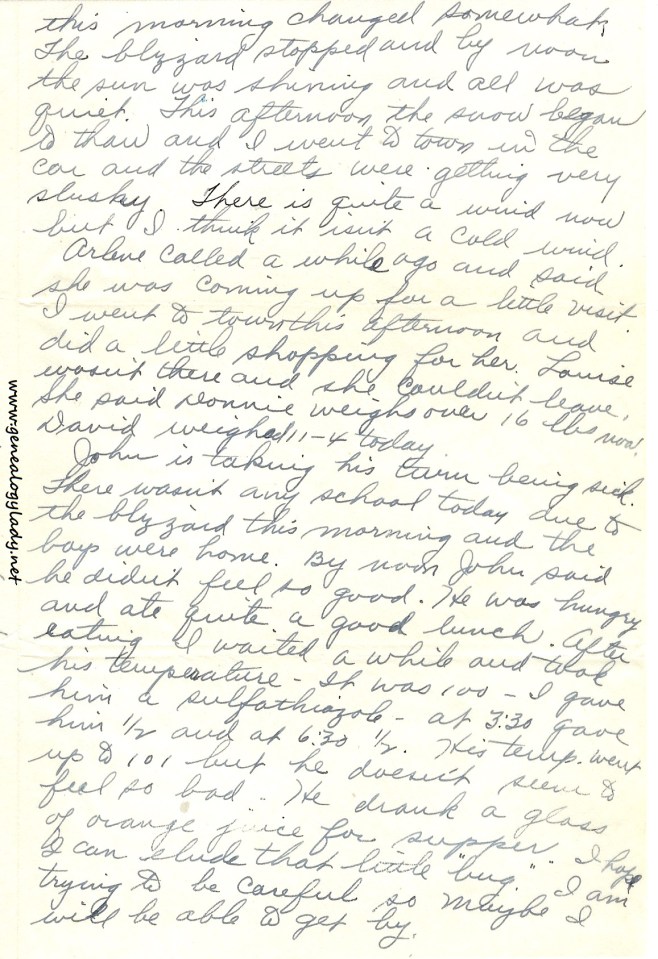 this morning changed somewhat,
The blyzzard stopped and by noon
the sun was shining and all was
quiet. This afternoon the snow began
to thaw and I went to town in the
car and the streets were getting very
slushey. There is quite a wind now
but I think it isn't a cold wind.
Arlene called a while ago and said
she was coming up for a little visit.
I went to town this afternoon and
did a little shopping for her. Louise
wasn't there and she couldn't leave.
She said Donnie weighs over 16 lbs now.
David weighed 11-4 today
John is taking his turn being sick.
There wasn't any school today due to
the blyzzard this morning and the
boys were home. By noon John said
he didn't feel so good. He was hungry
and ate quite a good lunch. After
eating I waited a while and took
his temperature - It was 100 - I gave
him a sulfathiazole - at 3:30 gave
him 1/2 and at 6:30 1/2. His temp. went
up to 101 but he doesn't seem to
feel so bad. He drank a glass
of orange juice for supper. I hope
I can elude that little "bug." I am
trying to be careful so maybe I
will be able to get by.
www.genealogylady.net